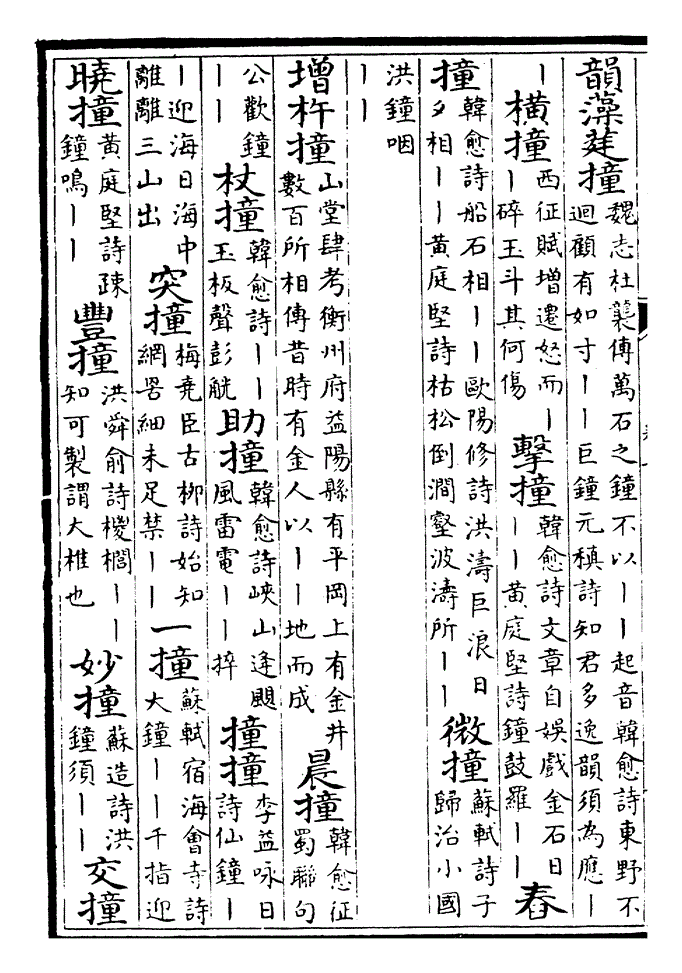 韻藻莛撞魏志杜襲傳萬石之鐘不以丨丨起音韓愈詩東野不迴顧有如寸丨丨巨鐘元稹詩知君多逸韻須為應丨
丨橫撞西征賦增遷怒而丨丨碎玉斗其何傷擊撞韓愈詩文章自娛戲金石日丨丨黃庭堅詩鐘鼓羅丨丨舂
撞韓愈詩船石相丨丨歐陽修詩洪濤巨浪日夕相丨丨黃庭堅詩枯松倒澗壑波濤所丨丨微撞蘇軾詩子歸治小國
洪鐘咽丨丨
增杵撞山堂肆考衡州府益陽縣有平岡上有金井數百所相傳昔時有金人以丨丨地而成晨撞韓愈征蜀聯句
公歡鐘丨丨杖撞韓愈詩丨丨玉板聲彭觥助撞韓愈詩峽山逄颶風雷電丨丨捽撞撞李益咏日詩仙鐘丨
丨迎海日海中離離三山出突撞梅堯臣古柳詩始知網罟細未足禁丨丨一撞蘇軾宿海會寺詩大鐘丨丨千指迎
曉撞黃庭堅詩疎鐘鳴丨丨豐撞洪舜俞詩櫚丨丨知可製謂大椎也妙撞蘇造詩洪鐘須丨丨交撞